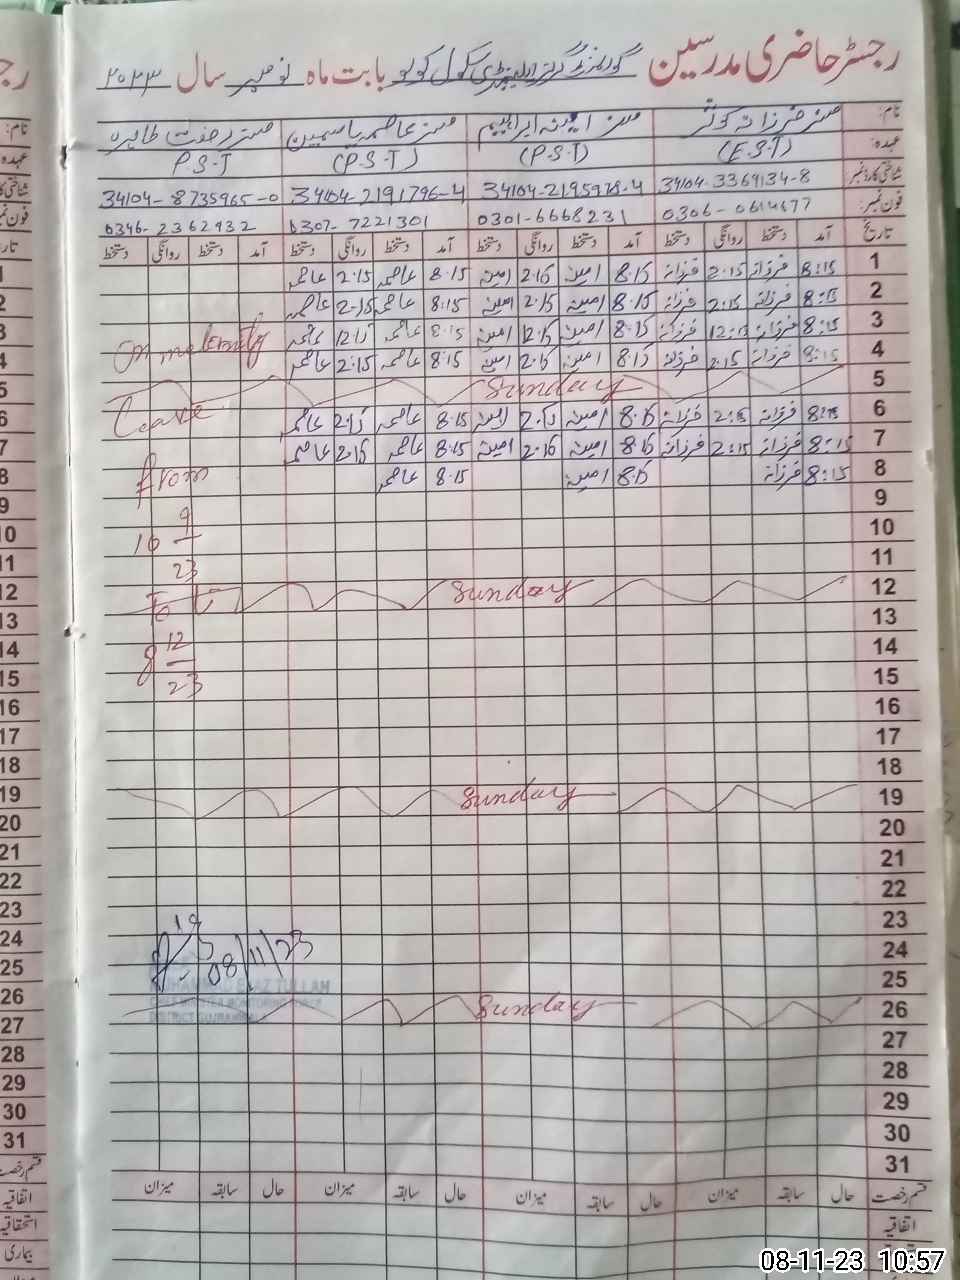 رجسٹر حاضری مدرسین گورنمنٹ گرلز ایلیمنٹری سکول کولو بابت ماہ نومبر سال ۲۰۲۳
نام: مسز فرزانہ کوثر مسز امینہ ابراہیم مسز عاصمہ یاسمین مسز رفعت طاہرہ
عہدہ: (E.S.T) (P.S.T) (P.S.T) P.S.T
شناختی کارڈ نمبر 34104-3369134-8 34104-2195978-4 34104-2191796-4 34104-8735965-0
فون نمبر: 0306-0614677 0301-6668231 0307-7221301 0346-2362932
تاریخ آمد دستخط روانگی دستخط آمد دستخط روانگی دستخط آمد دستخط روانگی دستخط آمد دستخط روانگی دستخط
1 8:15 فرزانہ 2:15 فرزانہ 8:15 امینہ 2:15 امینہ 8:15 عاصمہ 2:15 عاصمہ
2 8:15 فرزانہ 2:15 فرزانہ 8:15 امینہ 2:15 امینہ 8:15 عاصمہ 2:15 عاصمہ
3 8:15 فرزانہ 12:15 فرزانہ 8:15 امینہ 12:15 امینہ 8:15 عاصمہ 12:15 عاصمہ
on maternity
4 8:15 فرزانہ 2:15 فرزانہ 8:15 امینہ 2:15 امینہ 8:15 عاصمہ 2:15 عاصمہ
5 Sunday
Leave
6 8:15 فرزانہ 2:15 فرزانہ 8:15 امینہ 2:15 امینہ 8:15 عاصمہ 2:15 عاصمہ
7 8:15 فرزانہ 2:15 فرزانہ 8:15 امینہ 2:15 امینہ 8:15 عاصمہ 2:15 عاصمہ
8 8:15 فرزانہ 8:15 امینہ 8:15 عاصمہ
from
9
10
10 9
11
23
12 Sunday
To
13
14
8 12
15
23
16
17
18
19 Sunday
20
21
22
23
24
08/11/23
25
MUHAMMAD EJAZ TULLAH
26 Sunday
27
28
29
30
31
قسم رخصت حال سابقہ میزان حال سابقہ میزان حال سابقہ میزان حال سابقہ میزان
اتفاقیہ
08-11-23 10:57